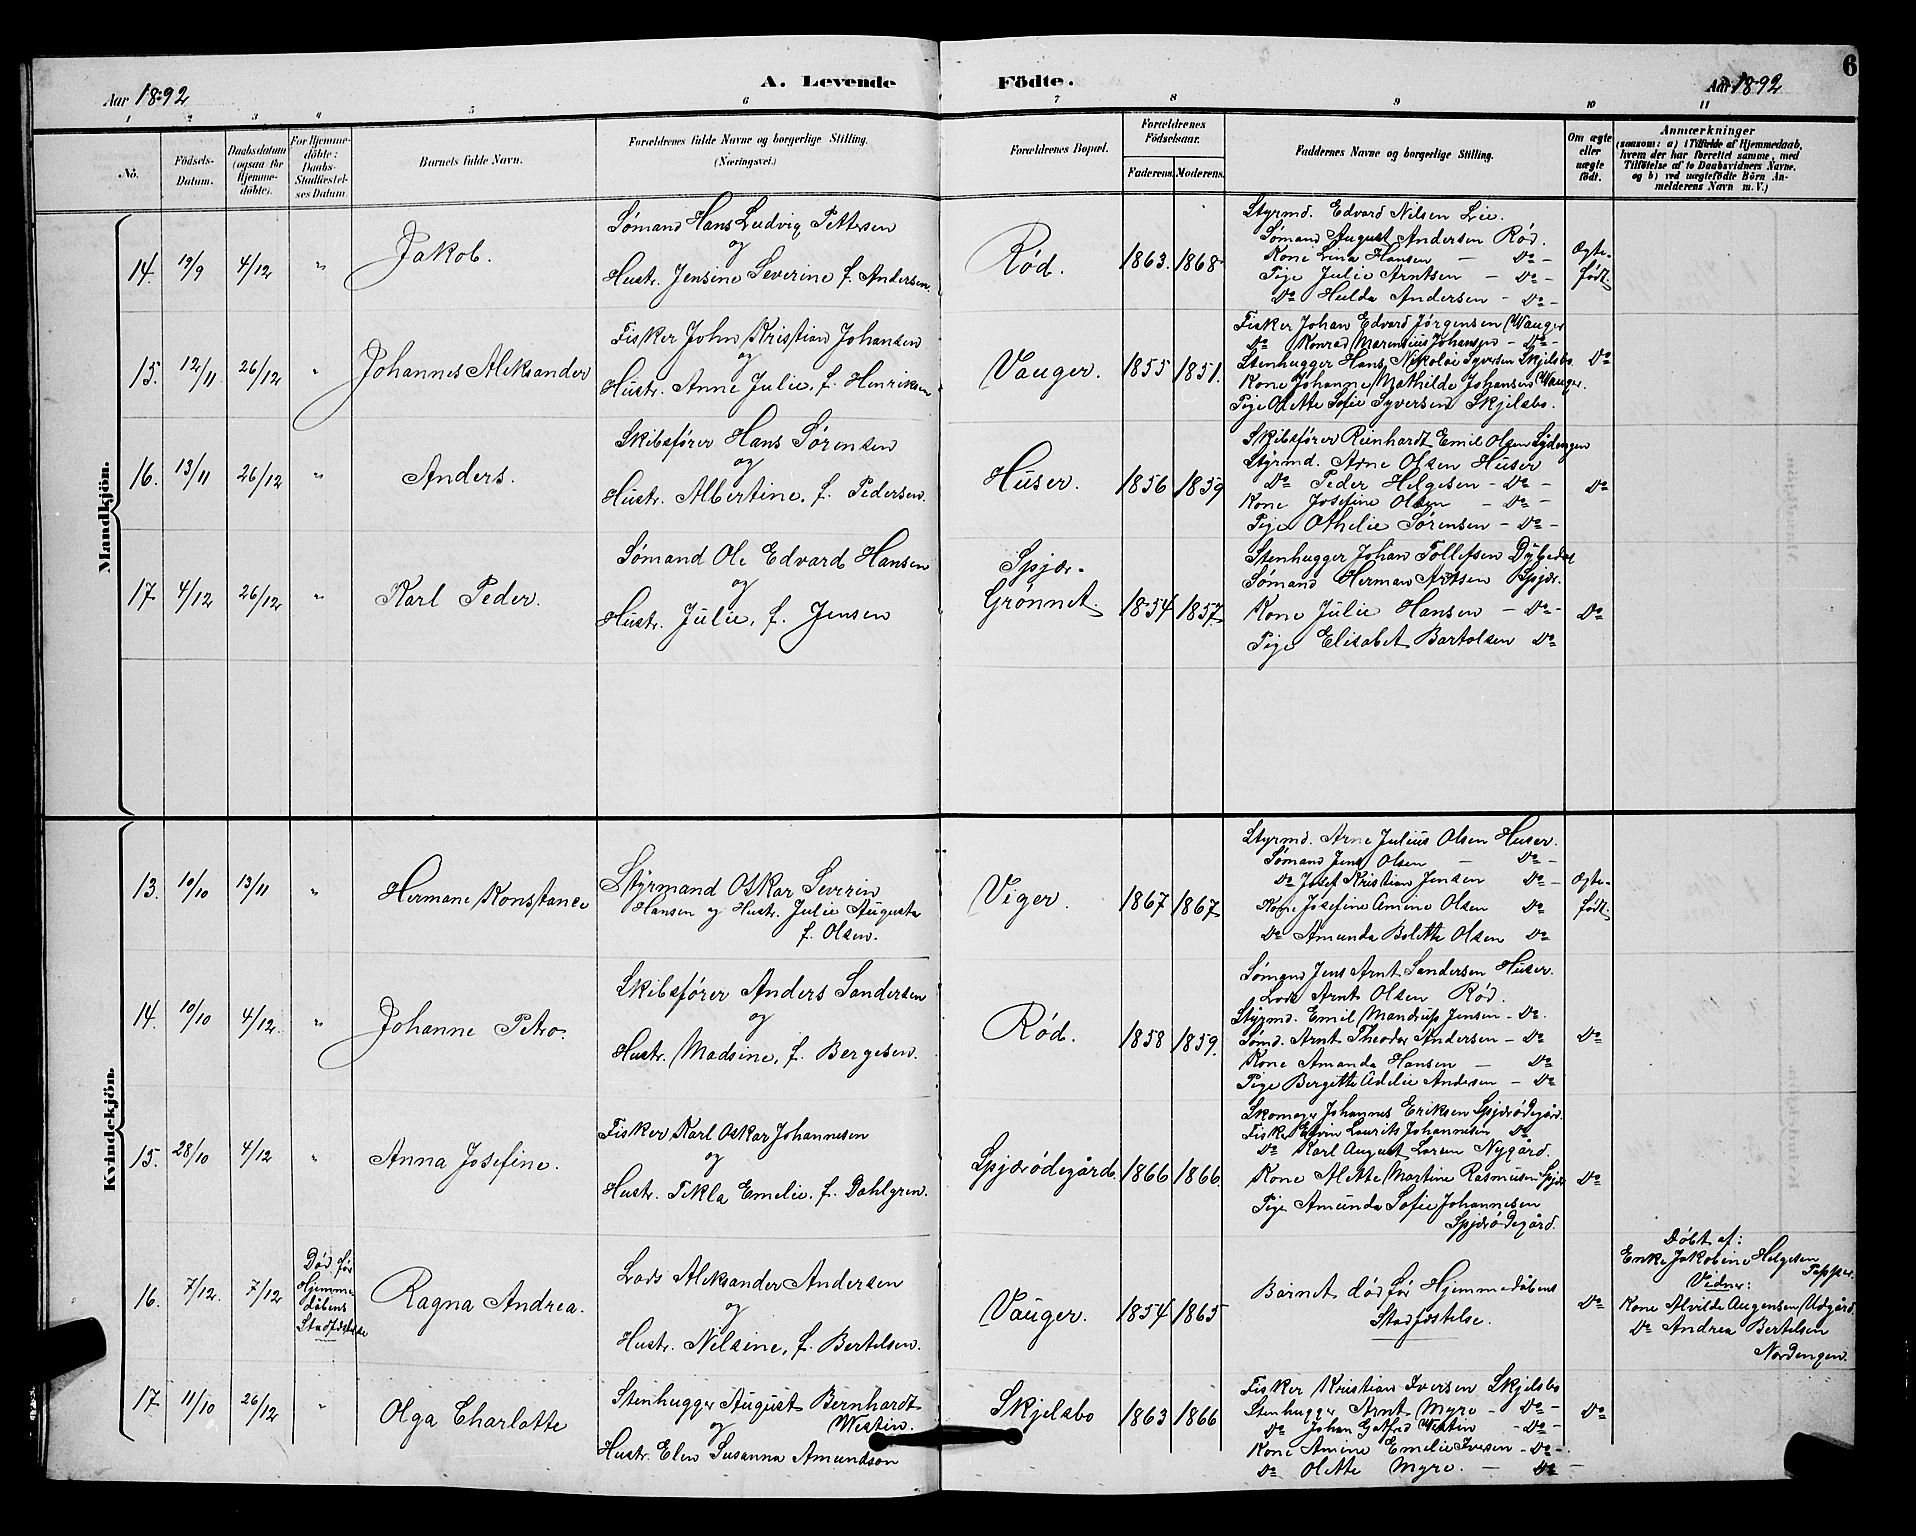 Aar 1892
A. Levende Födte.
Aar 1892
6
1 2 3 4 5 6 7 8 9 10 11
No.
Födsels-Datum.
Daabsdatum (ogsaa for Hjemme-döbte).
For Hjemme-döbte: Daabs-Stadfæstelses Datum.
Barnets fulde Navn.
Forældrenes fulde Navne og borgerlige Stilling. (Næringsvei.)
Forældrenes Bopæl.
Forældrenes Födselsaar.
Faderens. Moderens.
Faddernes Navne og borgerlige Stilling.
Om ægte eller uægte födt.
Anmærkninger
(saasom: a) i Tilfælde af Hjemmedaab, hvem der har forrettet samme, med Tilföielse af to Daabsvidners Navne, og b) ved uægtefödte Börn Anmelderens Navn m. V.)
Mandkjön.
14. 19/9 4/12 " Jakob.
Sømand Hans Ludvig Pettersen
og
Hustr. Jensine Severine f. Andersen.
Rød. 1863. 1868
Styrmd. Edvard Nilsen Lie.
Sømand August Andersen Rød.
Kone Lina Hansen – Do –
Pige Julie Arntsen – Do –
Do Hulda Andersen – Do –
Ægte-født.
15. 12/11 26/12 " Johannes Aleksander
Fisker John Kristian Johansen
og
Hustr. Anne Julie, f. Henriksen
Vauger. 1855 1851.
Fisker Johan Edvard Jørgensen Vauger
Do Konrad Marentius Johansen – Do –
Stenhugger Hans Nikolai Syversen Skjelsbo.
Kone Johanne Mathilde Johansen Vauger.
Pige Olette Sofie Syversen Skjelsbo.
Do
16. 13/11 26/12 " Anders.
Skibsfører Hans Sørensen
og
Hustr. Albertine, f. Pedersen.
Huser. 1856 1859
Skibsfører Reinhardt Emil Olsen Sydengen
Styrmd. Arne Olsen Huser
Do Peder Helgesen – Do –
Kone Josefine Olsen – Do –
Pige Othelie Sørensen – Do –
Do
17 4/12 26/12 " Karl Peder.
Sømand Ole Edvard Hansen
og
Hustr. Julie, f. Jensen
Spjær-
Grønnet. 1854 1857.
Stenhugger Johan Tollefsen
Sømand Herman Arntsen Spjær.
Kone Julie Hansen – Do –
Pige Elisabet Bartolsen Do
Do
Kvindekjön.
13. 10/10 13/11 " Hermane Konstance
Styrmand Oskar Severin
Hansen og Hustr. Julie Augusta
f. Olsen.
Viger. 1867 1867
Styrmd. Arne Julius Olsen Huser.
Sømand Jens Olsen – Do –
Do Josef Kristian Jensen Do –
Kone Josefine Amine Olsen Do
Do Amunda Bolette Olsen Do
Ægte-født.
14. 10/10 4/12. " Johanne Petro.
Skibsfører Anders Sandersen
og
Hustr. Madsine, f. Bergesen.
Rød. 1858 1859.
Sømand Jens Arnt Sandersen Huser.
Lods Arnt Olsen Rød.
Styrmd. Emil Mandrup Jensen – Do.
Sømd. Arnt Theodor Andersen – Do
Kone Amanda Hansen – Do
Pige Bergitte Adelie Andersen – Do
Do
15. 28/10 4/12 " Anna Josefine.
Fisker Karl Oskar Johannesen
og
Hustr. Tekla Emelie. f. Dahlgren.
Spjærødegård. 1866 1866
Skomager Johannes Eriksen Spjærødegård.
Fisker Edvin Laurits Johannesen Do
Do Karl August Loren Nygård.
Kone Alette Martine Rasmusen Spjær
Pige Amunda Sofie Johannesen
Spjærødegård.
Do
16. 7/12. 7/12 Død før Hjemmedåbens Stadfæstelse
Ragna Andrea.
Lods Aleksander Andersen
og
Hustr. Nilsine, f. Bertelsen.
Vauger. 1854 1865
Barnet død før Hjemmedåbens
Stadfæstelse.
Do
Døbt af:
Enke Jakobine Helgesen
Pepper.
Vidner:
Kone Alvilde Augensen Udgård
Do Andrea Bertelsen
Nordengen.
17 11/10 26/12 " Olga Charlotte
Stenhugger August Bernhardt
og Westin.
Hustr. Elen Susanna Amundson
Skjelsbo 1863 1866
Fisker Kristian Iversen Skjelsbo
Stenhugger Arnt Myre – Do –
Do Johan Gotfred Westin – Do –
Kone Amine Emelie Iversen – Do –
Do Olette Myre. – Do –
Do